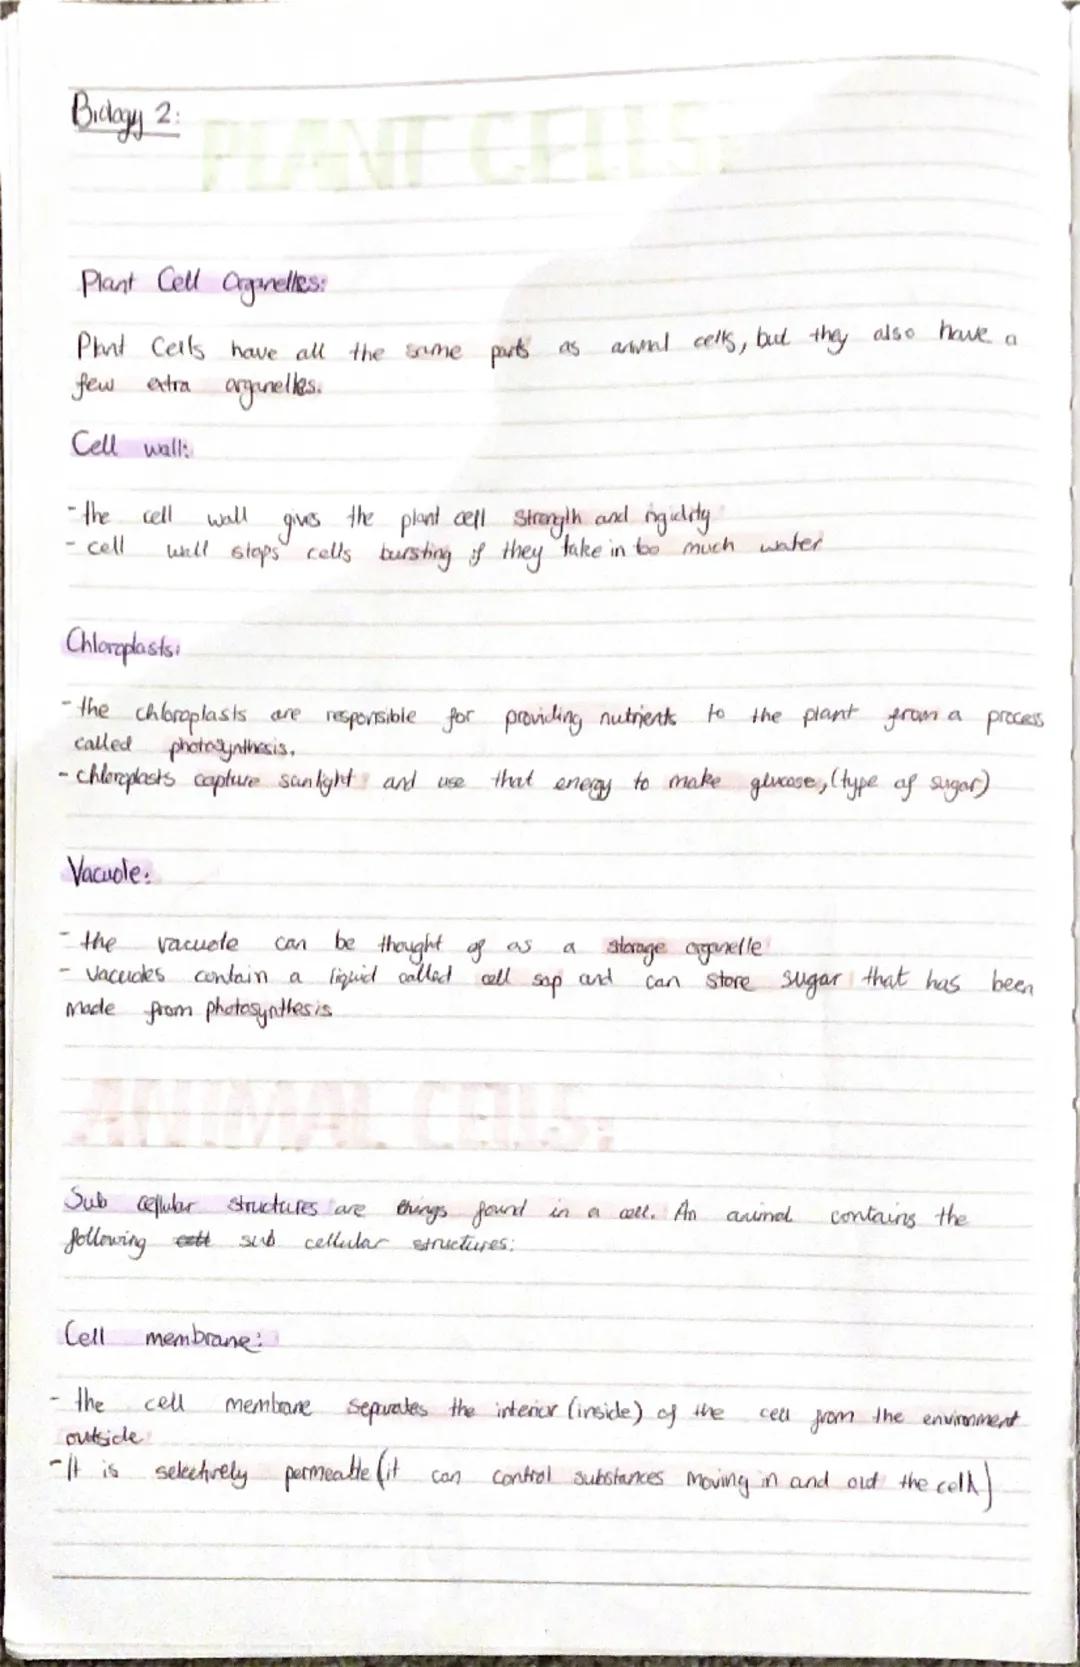 Biology 2:
PLANT CELLS:
Plant Cell Organelles:
Plant Cells have all the same parts as animal cells, but they also have a
few extra organelles.
Cell wall:
- the cell wall gives the plant cell strength and rigidity
- cell wall stops cells bursting if they take in too much water
Chloroplasts:
- the chloroplasts are responsible for providing nutrients to the plant from a process
called photosynthesis.
- chloroplasts capture sunlight and use that energy to make glucose, (type of sugar)
Vacuole:
- the vacuole can be thought of as a storage organelle
- Vacuoles contain a liquid called cell sap and can store sugar that has been
made from photosynthesis
ANIMAL CELLS:
Sub cellular structures are things found in a cell. An animal contains the
following cell sub cellular structures:
Cell membrane:
- the cell membrane separates the interior (inside) of the cell from the environment
outside
- It is selectively permeable (it can control substances moving in and out the cell)